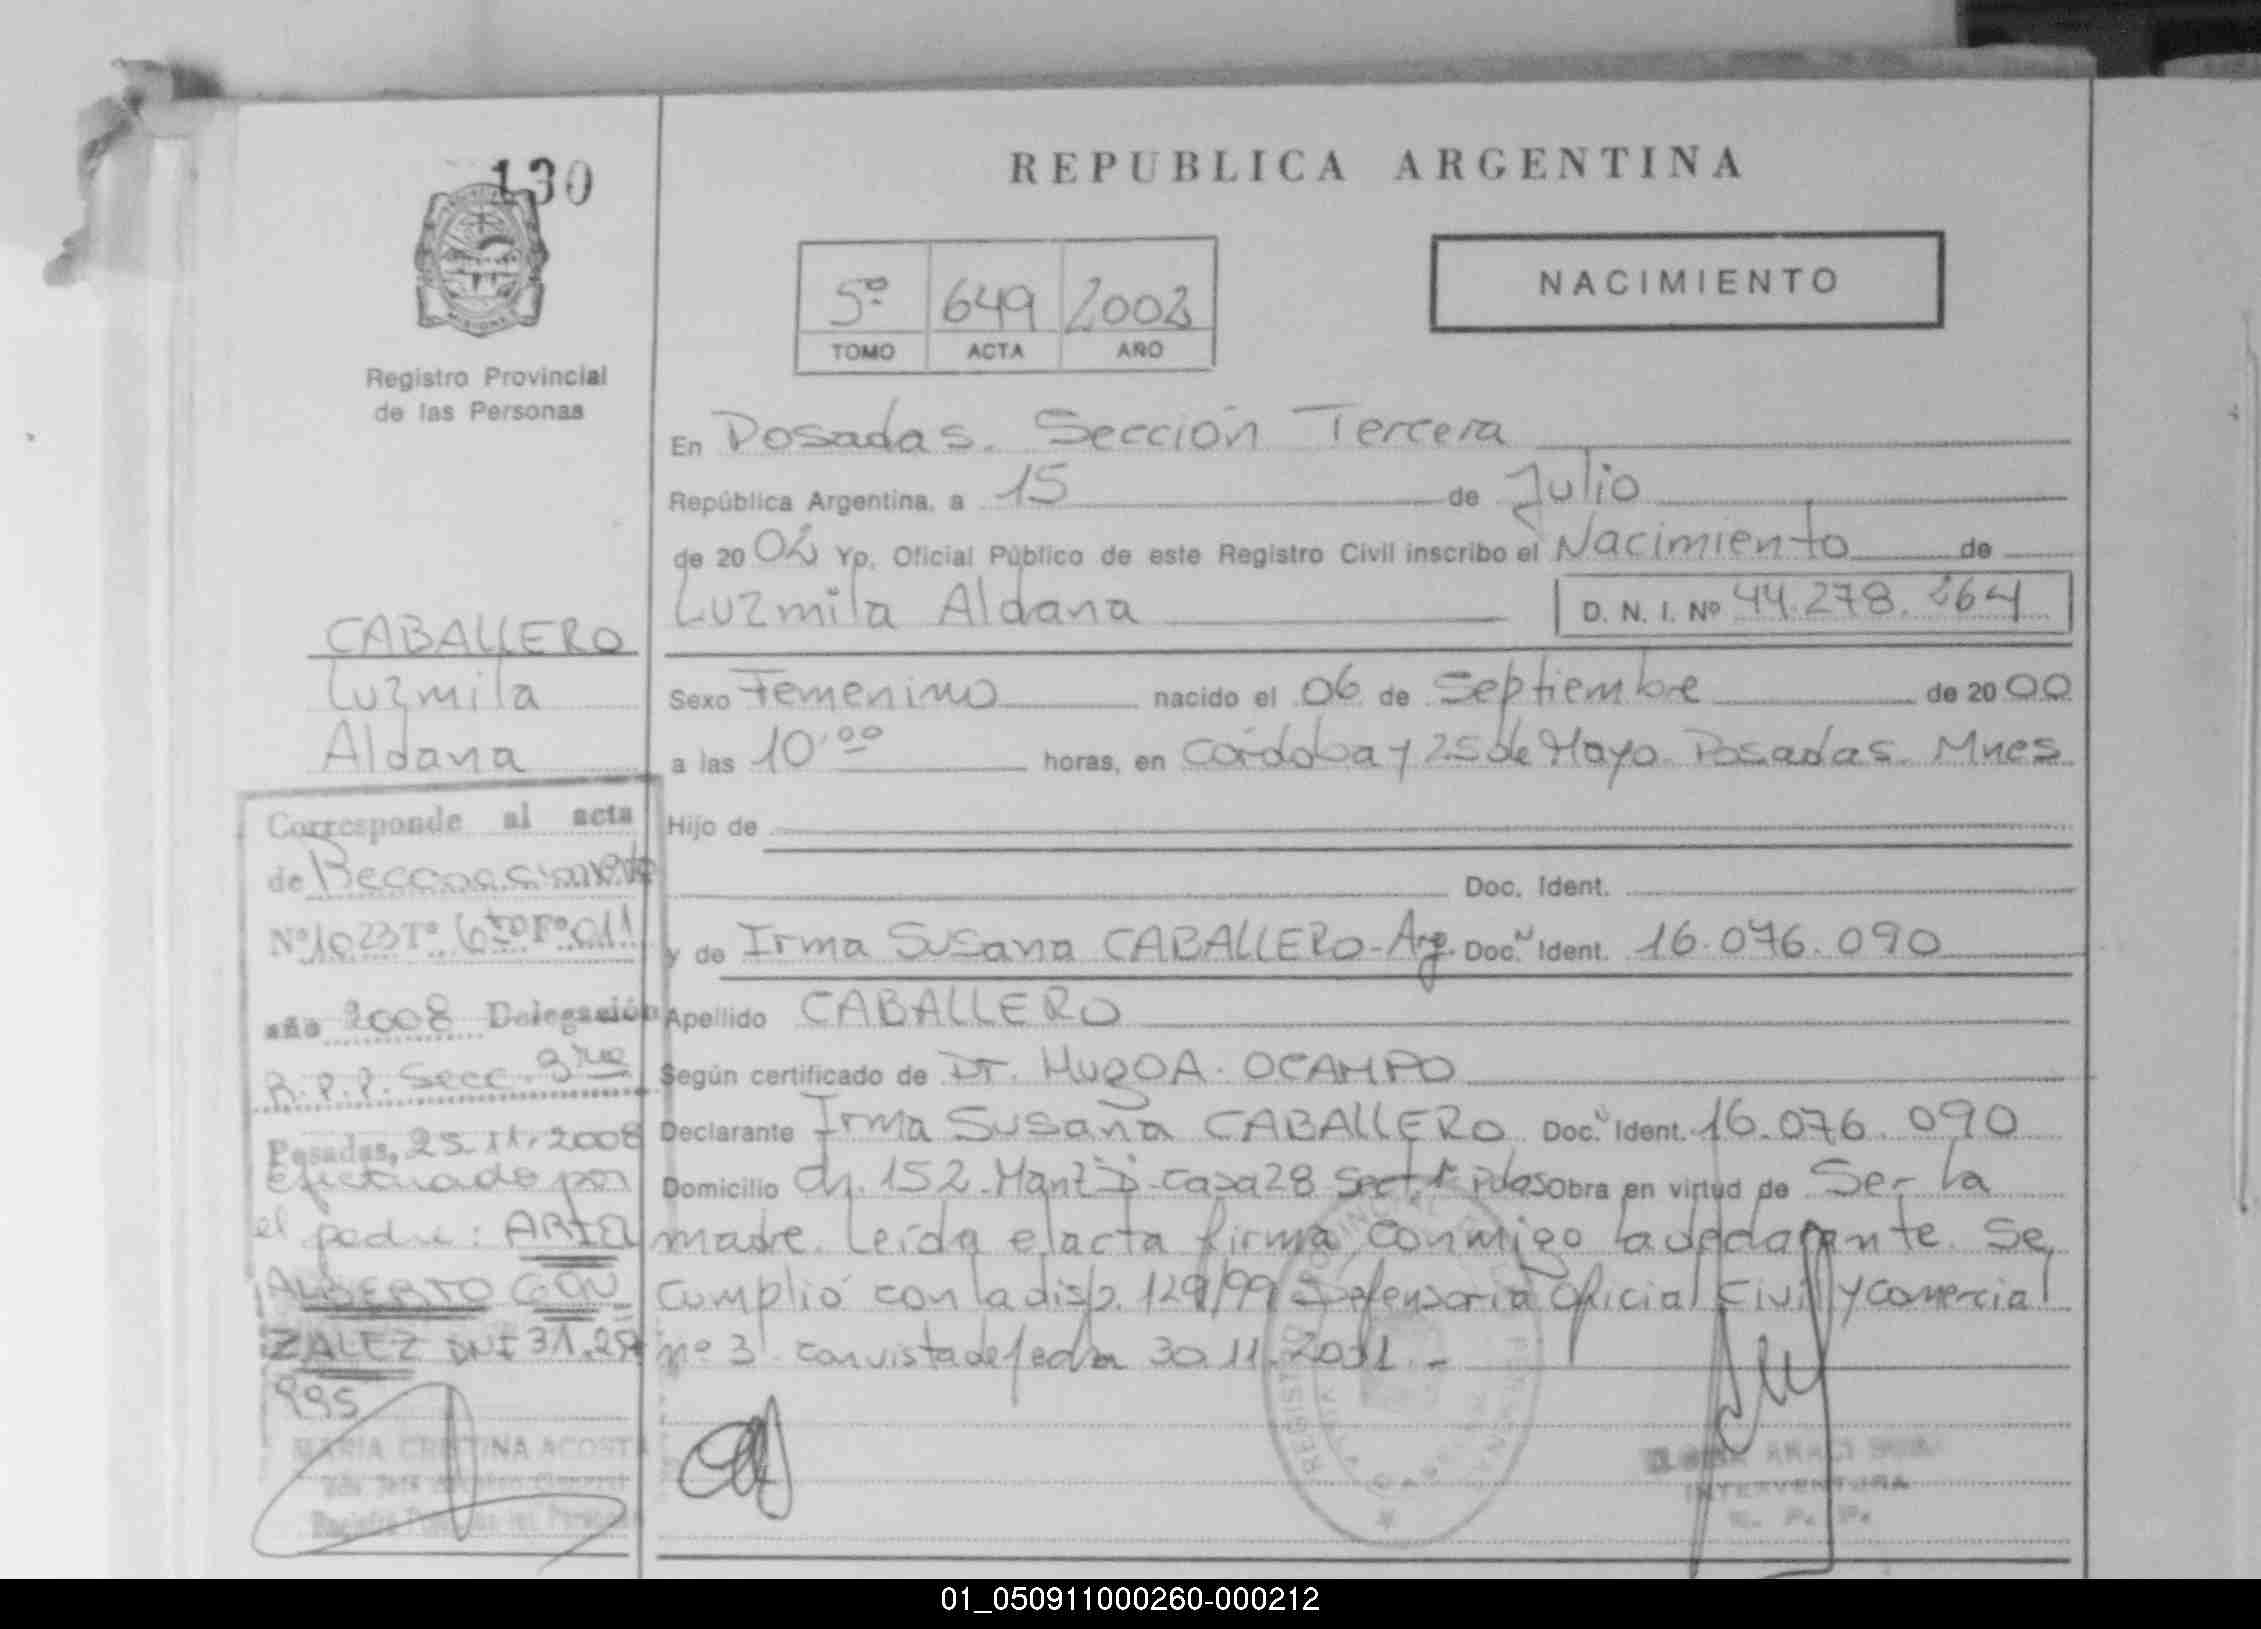 130
REPUBLICA ARGENTINA
5º 649 2002
TOMO ACTA AÑO
NACIMIENTO
Registro Provincial
de las Personas
En Posadas. Sección Tercera
República Argentina, a 15 de Julio
de 2002 Yo, Oficial Público de este Registro Civil inscribo el Nacimiento de
Luzmila Aldana D. N. I. Nº 44.278.264
Sexo Femenino nacido el 06 de Septiembre de 2000
a las 10:00 horas, en Córdoba y 25 de Mayo. Posadas. Mnes
Hijo de
Doc. Ident.
y de Irma Susana CABALLERO - Arg. Doc. Ident. 16.076.090
Apellido CABALLERO
Según certificado de Dr. Hugo A. OCAMPO
Declarante Irma Susana CABALLERO Doc. Ident. 16.076.090
Domicilio Ch. 152. Casa 28 obra en virtud de Ser la
madre. Leída el acta firma conmigo la declarante. Se
cumplió con la disp. 129/99 Defensoria Oficial Civil y Comercial
nº 3 con vista de fecha 30.11.2001.-
CABALLERO
Luzmila
Aldana
Corresponde al acta
de Reconocimiento
Nº 1023 Tº 6to Fº 011
año 2008 Delegación
R.P.P. Secc. 3ra
Posadas, 25.11.2008
efectuado por
el padre: ARIEL
ALBERTO GON
ZALEZ DNI 31.
995
MARIA CRISTINA ACOSTA
INTERVENTORA
R. P. P.
01_050911000260-000212